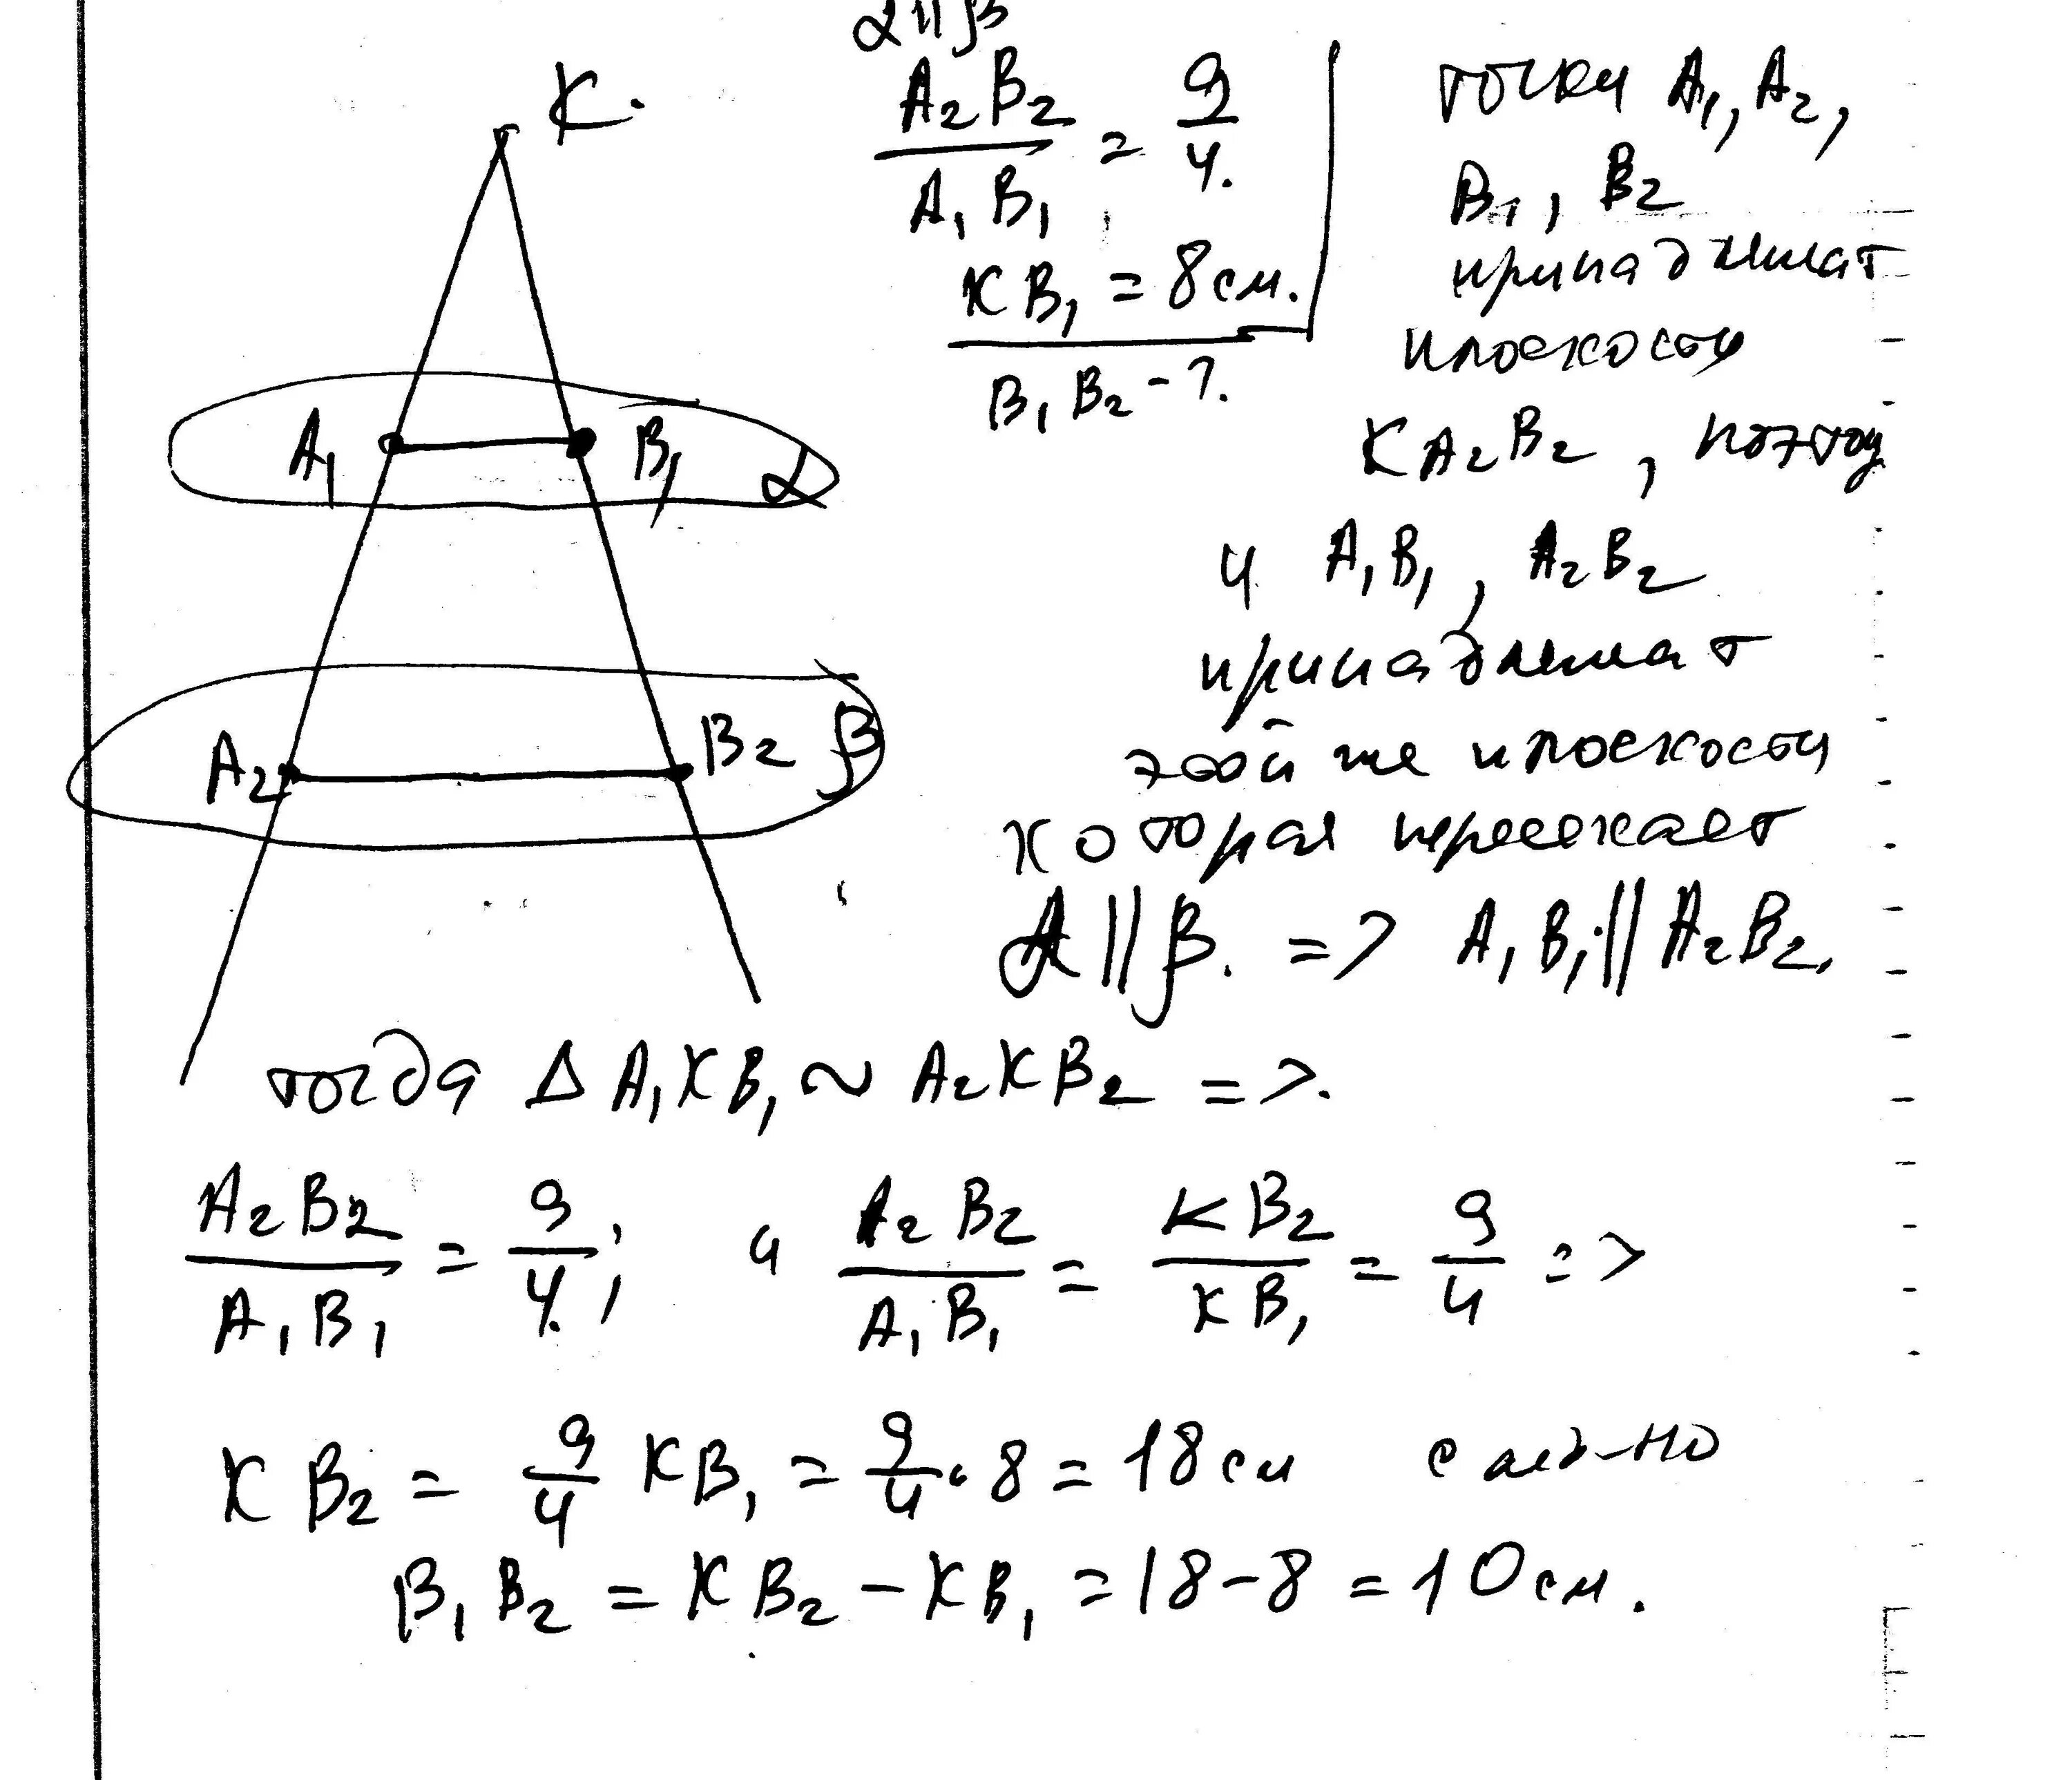 K.
α || β
A₂B₂ / A₁B₁ = 9/4.
KB₁ = 8 см.
B₁B₂ - ?.
точки A₁, A₂,
B₁, B₂
принадлежат
плоскости
KA₂B₂, поэтому
и A₁B₁, A₂B₂
принадлежат
этой же плоскости
которая пересекает
α || β. => A₁B₁ || A₂B₂.
A₁ B₁ α
A₂ B₂ β
тогда Δ A₁KB₁ ~ A₂KB₂ =>.
A₂B₂ / A₁B₁ = 9/4.; а A₂B₂ / A₁B₁ = KB₂ / KB₁ = 9/4 =>
KB₂ = 9/4 KB₁ = 9/4 · 8 = 18 см след-но
B₁B₂ = KB₂ - KB₁ = 18 - 8 = 10 см.